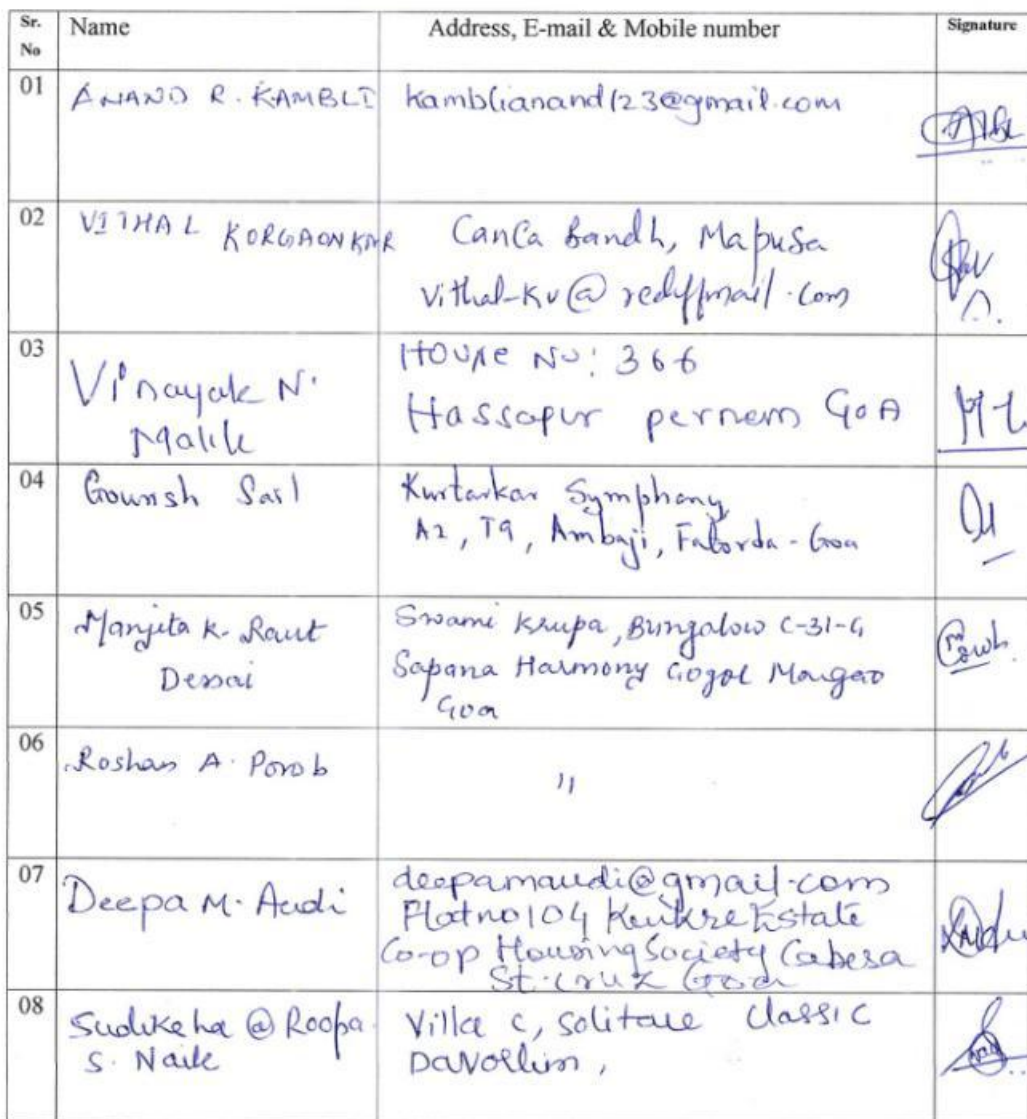 Sr. No Name Address, E-mail & Mobile number Signature
01 ANAND R. KAMBLI kamblianand123@gmail.com
02 VITHAL KORGAONKAR Canca Bandh, Mapusa
vithal-kv@rediffmail.com
03 Vinayak N. House No: 366
Malik Hassapur pernem GOA
04 Gounsh Sail Kurtarkar Symphony
A2, T9, Ambaji, Fatorda - Goa
05 Manjita K. Raut Swami Krupa, Bungalow C-31-G
Dessai Sapana Harmony Gogol Margao
Goa
06 Roshan A. Porob "
07 Deepa M. Audi deepamaudi@gmail.com
Flat no 104 Kenkre Estate
Co-op Housing Society Cabesa
St. Cruz Goa
08 @ Roopa Villa C, Solitare Classic
S. Naik Davorlim,